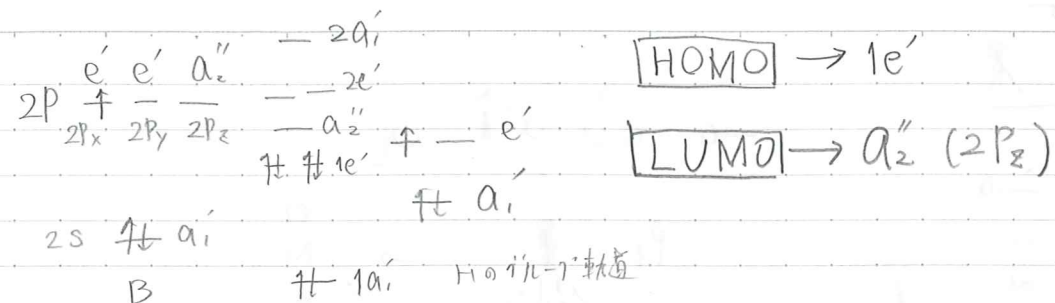 — 2a₁′
e′ e′ a₂″
— — 2e′
2P ↑ — —
2Px 2Py 2Pz
— a₂″
↑ — e′
⇅ ⇅ 1e′
⇅ a₁′
2s ⇅ a₁′
B
⇅ 1a₁′
Hのグループ軌道
HOMO → 1e′
LUMO → a₂″ (2Pz)